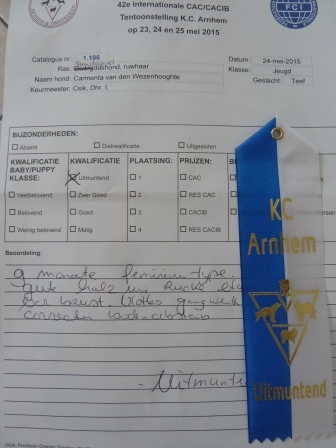 42e Internationale CAC/CACIB
Tentoonstelling K.C. Arnhem
op 23, 24 en 25 mei 2015
FCI
Catalogue nr: 1.196
Datum: 24-mei-2015
Ras: dashond, ruwhaar
Klasse: Jeugd
Naam hond: Carmenta van den Wezenhooghte
Geslacht: Teef
Keurmeester: Csik, Dhr. I.
BIJZONDERHEDEN:
Absent
Diskwalificatie
Uitgesloten
KWALIFICATIE BABY/PUPPY KLASSE:
KWALIFICATIE
PLAATSING:
PRIJZEN:
Uitmuntend
1
CAC
Veelbelovend
Zeer Goed
2
RES CAC
Belovend
Goed
3
CACIB
Weinig belovend
Matig
4
RES CACIB
Beoordeling:
9 monate feminin type,
gute hals
brust.
- Uitmunte
KC
Arnhem
Uitmuntend